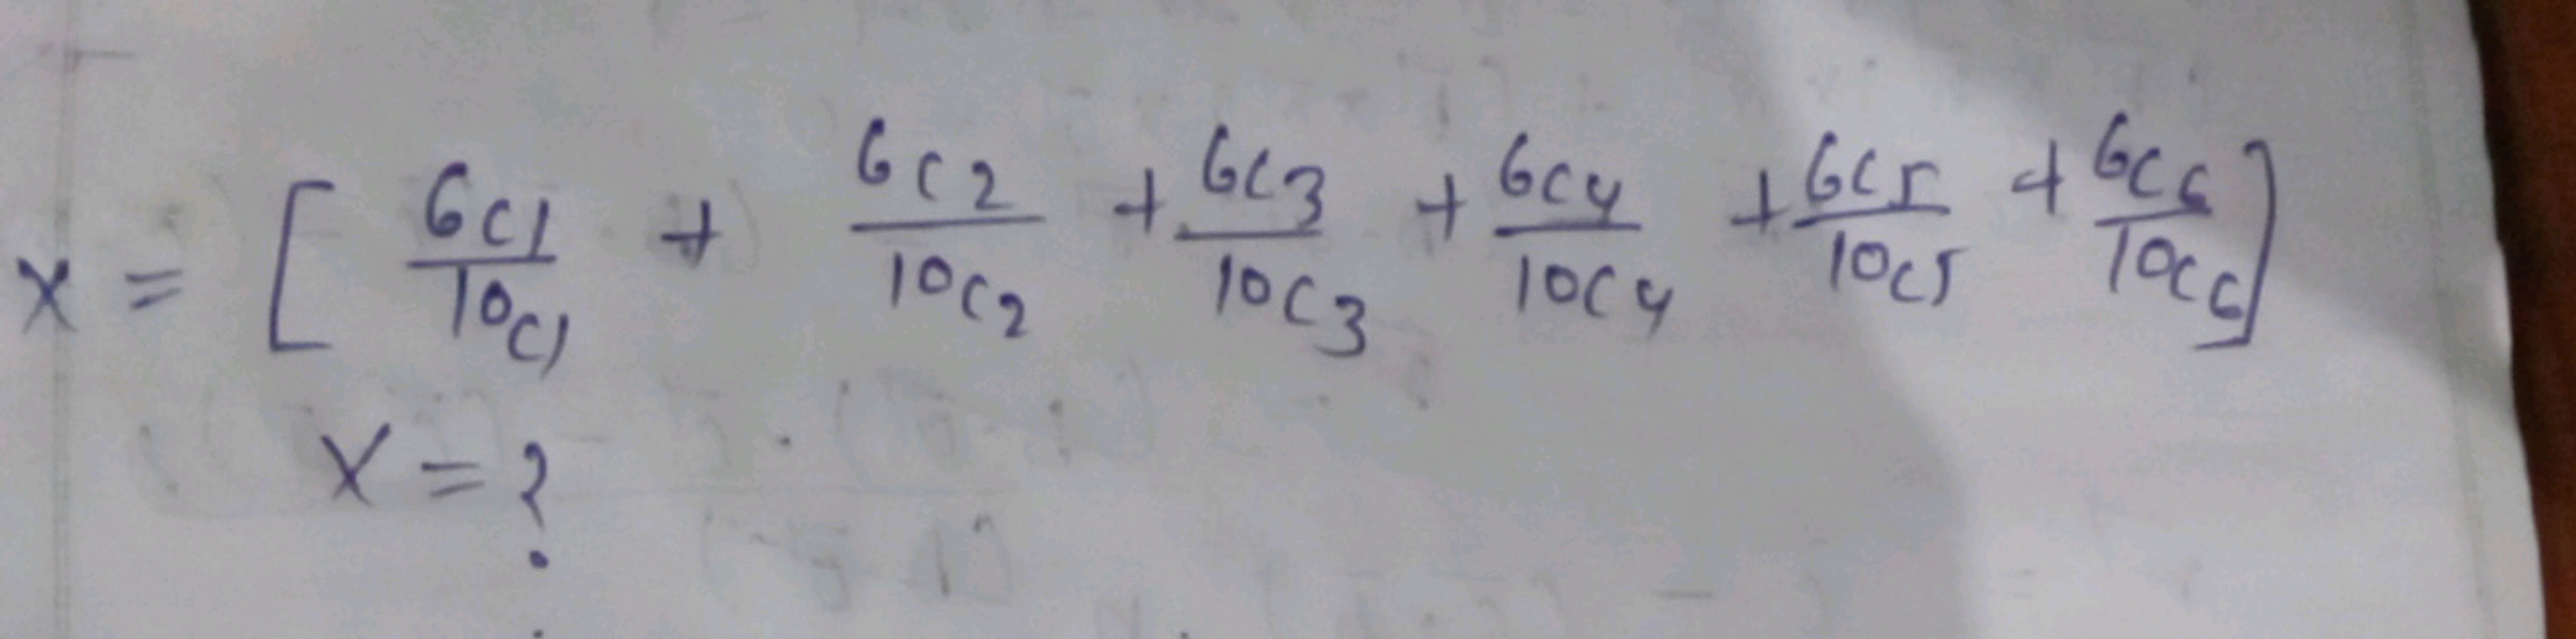 x = [ 6c1/10c1 + 6c2/10c2 + 6c3/10c3 + 6c4/10c4 + 6c5/10c5 + 6c6/10c6 ]
x = ?